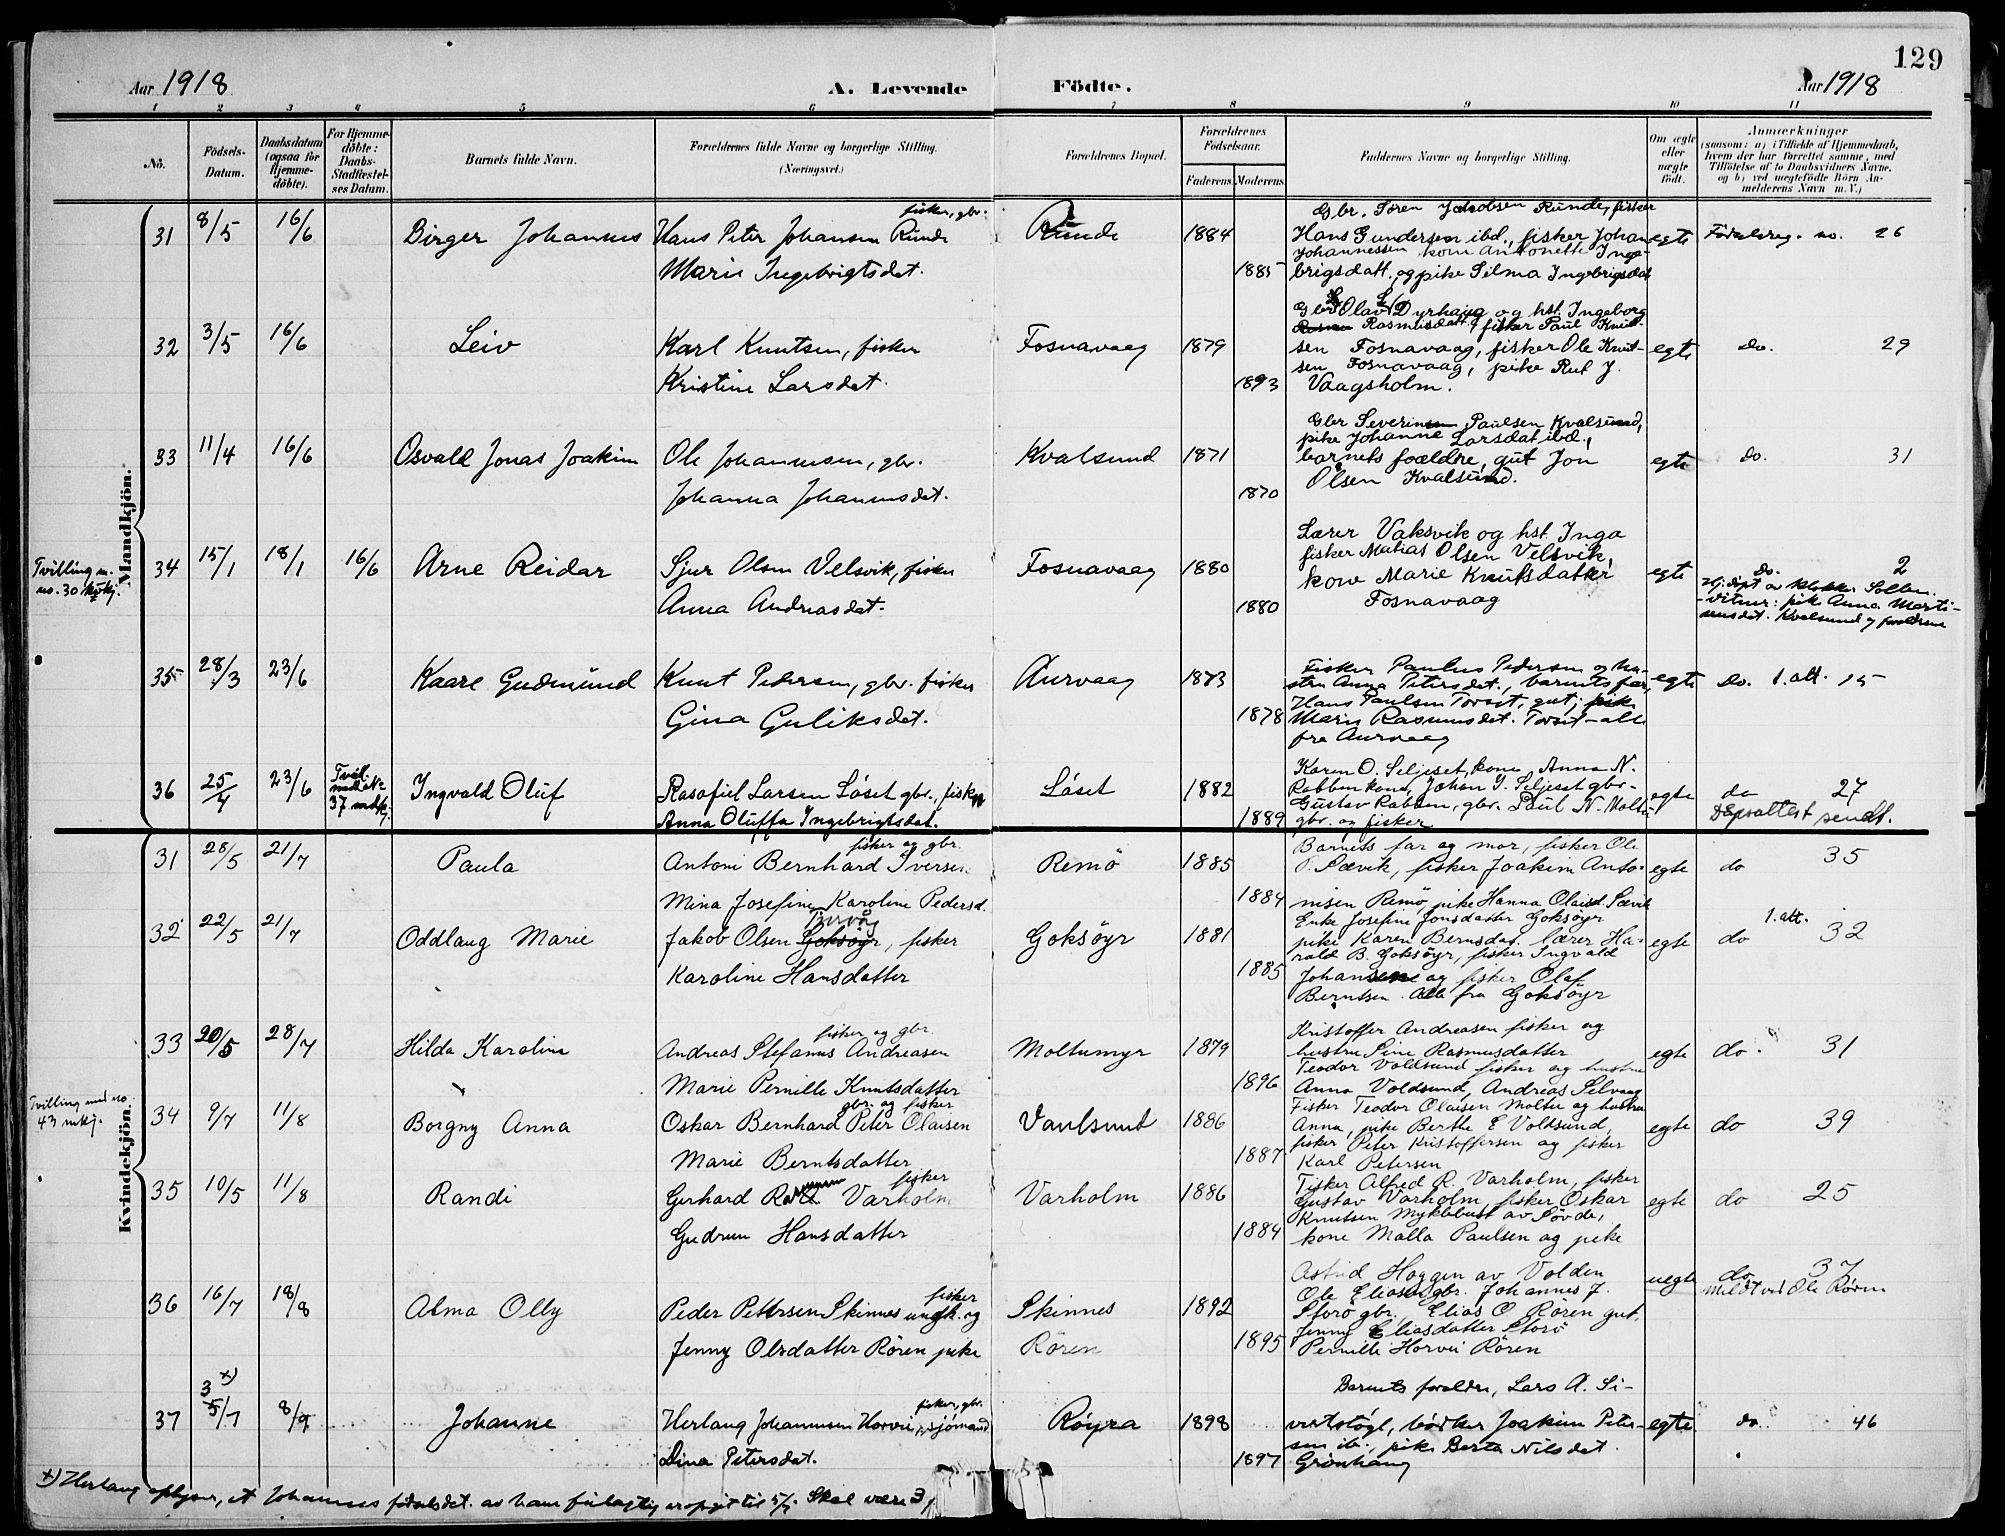 129
Aar 1918
A. Levende Födte.
Aar 1918
1 2 3 4 5 6 7 8 9 10 11
No.
Födsels-Datum.
Daabsdatum (ogsaa for Hjemme-döbte).
For Hjemme-döbte: Daabs-Stadfæstel-ses Datum.
Barnets fulde Navn.
Forældrenes fulde Navne og borgerlige Stilling.
(Næringsvei.)
Forældrenes Bopæl.
Forældrenes Födselsaar.
Faderens. Moderens.
Faddernes Navne og borgerlige Stilling.
Om ægte eller uægte födt.
Anmærkninger
(saasom: a) i Tilfælde af Hjemmedaab,
hvem der har forrettet samme, med
Tilföielse af to Daabsvidners Navne,
og b) ved uægtefödte Börn An-
melderens Navn m. V.)
Mandkjön.
31 8/5 16/6 Birger Johannes
Hans Peter Johansen Runde fisker, gbr.
Marie Ingebrigtsdat.
Runde 1884 1885
Gbr. Sören Jakobsen Runde, fisker
Hans Gundersen ibd., fisker Johan
Johannessen, kone Antonette Inge-
brigsdatt, og pike Silma Ingebrigsdat
egte Födselsreg. no. 26
32 3/5 16/6 Leiv
Karl Knutsen, fisker
Kristine Larsdat.
Fosnavaag 1879 1893
Gbr Olav Dyrhaug og hst. Ingeborg
Rasmusdatt, fisker Paul Knut-
sen Fosnavaag, fisker Ole Knut-
sen Fosnavaag, pike Rut J.
Vaagsholm.
egte do. 29
33 11/4 16/6 Osvald Jonas Joakim
Ole Johannesen, gbr.
Johanna Johannesdat.
Kvalsund 1871 1870
Gbr Severin Paulsen Kvalsund,
pike Johanne Larsdat ibd.,
barnets forældre, gut Jon
Olsen Kvalsund.
egte do. 31
Tvilling m. no. 30 kvkj.
34 15/1 18/1 16/6 Arne Reidar
Sjur Olsen Velsvik, fisker
Anna Andreasdat.
Fosnavaag 1880 1880
Lærer Vaksvik og hst. Inga
fisker Matias Olsen Velsvik,
kone Marie Knutsdatter
Fosnavaag
egte do. 2
Hj. döpt av klokker Solben.
-vitner: pike Anna Marti-
nusdat. Kvalsund og foreldrene
35 28/3 23/6 Kaare Gudmund
Knut Pedersen, gbr. fisker
Gina Guliksdat.
Aurvaag 1873 1878
Fisker Paulus Pedersen og hu-
stru Anna Petersdat., barnets far,
Hans Paulsen Torset, gut, pike
Marie Rasmusdat. Torset - alle
fra Aurvaag
egte do. 1. att. 15
36 25/4 23/6 Tvill. med No 37 mdkj.
Ingvald Oluf
Rasafiel Larsen Löset gbr., fisker
Anna Oluffa Ingebrigtsdat.
Löset 1882 1889
Karen O. Seljeset, kone, Anna N.
Rabben kone, Johan G. Seljeset gbr.
Gustav Rabben, gbr. Paul N. Moltu
gbr. og fisker
egte do 27
Dåpsattest sendt.
Kvindekjön.
31 28/5 21/7 Paula
fisker og gbr.
Antoni Bernhard Iversen
Mina Josefine Karoline Pedersd.
Remö 1885 1884
Barnets far og mor, fisker Ole
P. Sævik, fisker Joakim Anto-
nisen Remö, pike Hanna Olaisd. Sævik
egte do 35
32 22/5 21/7 Oddlaug Marie
Jakob Olsen Goksöyr, fisker
Karoline Hansdatter
Goksöyr 1881 1885
Enke Josefine Jonsdatter Goksöyr
pike Karen Berntsdat. lærer Ha-
rald B. Goksöyr, fisker Ingvald
Johansen og fisker Olaf
Berntsen. Alle fra Goksöyr
egte do 1. att. 32
33 20/5 28/7 Hilda Karoline
fisker og gbr.
Andreas Stefanus Andreasen
Marie Pernille Knutsdatter
Moltumyr 1879 1896
Kristoffer Andreasen fisker og
hustru Sine Rasmusdatter
Teodor Voldsund fisker og hustru
Anna Voldsund, Andreas Selvaag
egte do. 31
Tvilling med no. 43 mkj.
34 9/7 11/8 Borgny Anna
gbr. og fisker
Oskar Bernhard Peter Olaisen
Marie Berntsdatter
Vaulsund 1886 1887
Fisker Teodor Olaisen Moltu og hustru
Anna, pike Berthe E Voldsund,
fisker Peter Kristoffersen og fisker
Karl Petersen
egte do 39
35 10/5 11/8 Randi
fisker
Gerhard Varholm
Gudrun Hansdatter
Varholm 1886 1884
Fisker Alfred R. Varholm, fisker
Gustav Varholm, fisker Oskar
Knutsen Myklebust av Sövde,
kone Malla Paulsen og pike
Astrid Haggen av Volden
egte do 25
36 16/7 18/8 Alma Olly
fisker
Peder Pettersen Skinnes ungk. og
Jenny Olsdatter Rören pike
Skinnes
Rören
1892 1895
Ole Eliasen gbr. Johannes J.
Storö gbr. Elias O Rören gut,
Jenny Eliasdatter Storö
Pernille Horvei Rören
uegte do. 37
Meldt ved Ole Rören
37 3 x) 5/7 8/9 Johanne
fisker, gbr.
Herlaug Johannesen Horvei, sjömand
Dina Petersdat.
Röyra 1898 1897
Barnets foreldre, Lars A. Si-
vertstögl, bödker Joakim Peter-
sen ib., pike Berta Nilsdat.
Grönhaug
egte do. 46
x) Herlaug oplyser, at Johannes födselsdat. av ham feilagtig er opgit til 5/7. Skal være 3/